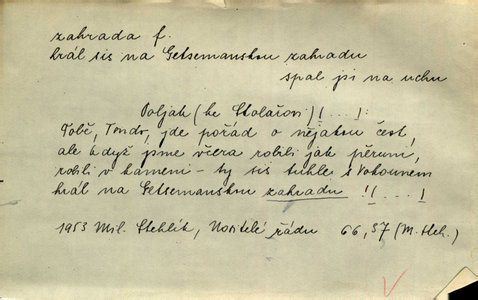 zahrada f.
hrál sis na Getsemanskou zahradu
spal jsi na uchu
Poljak (ke Stolařovi) (...):
Tobě, Tondo, jde pořád o nějakou čest,
ale když jsme včera robili jak pěruni,
robili v kameni – ty sis tuhle s Vokounem
hrál na Getsemanskou zahradu! (...)
1953 Mil. Stehlík, Nositelé řádu 66, 57 (M. Hch.)